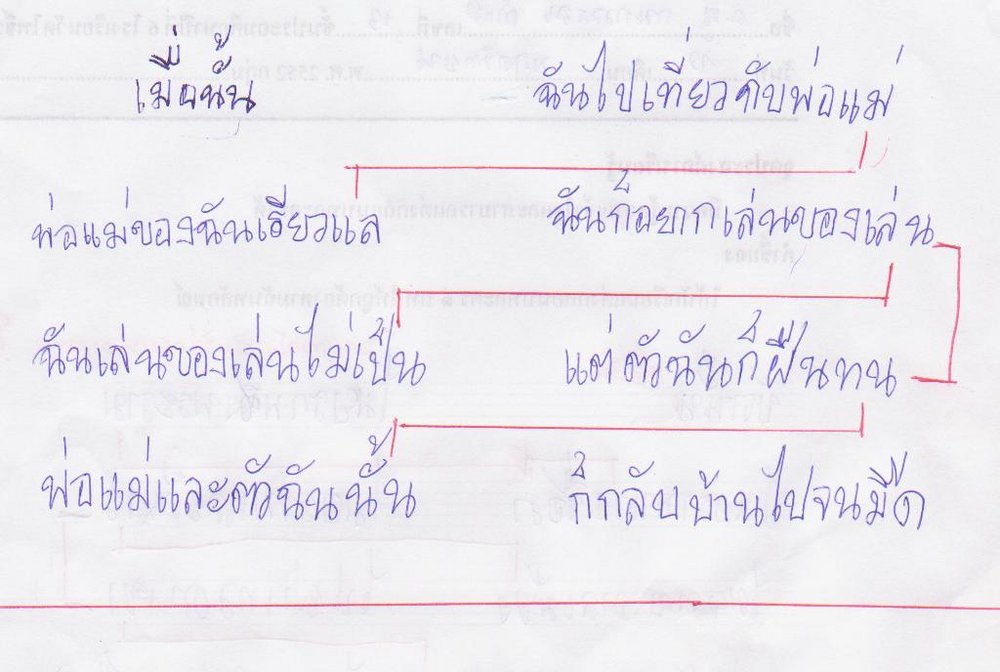 เมื่อนั้น ฉันไปเที่ยวกับพ่อแม่
พ่อแม่ของฉันเฮียวแล ฉันก็อยากเล่นของเล่น
ฉันเล่นของเล่นไม่เป็น แต่ตัวฉันก็ฝืนทน
พ่อแม่และตัวฉันนั้น ก็กลับบ้านไปจนมืด